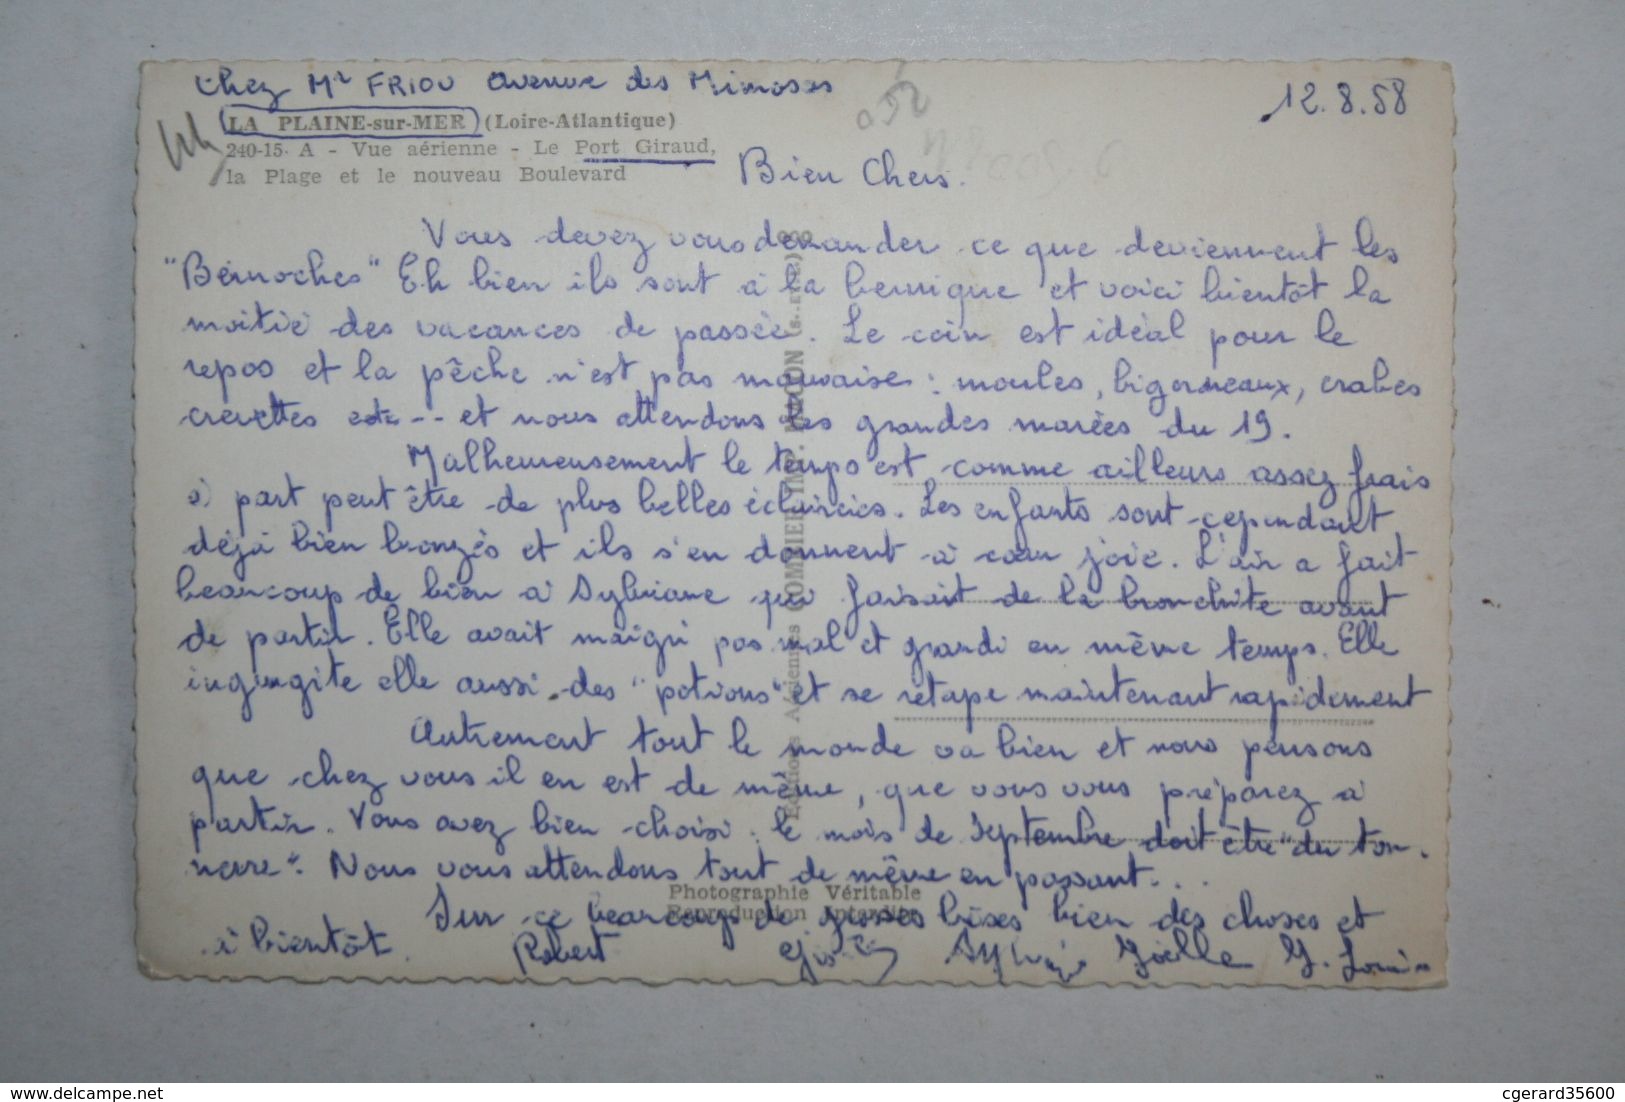 Chez Mr FRIOU Avenue des Mimosas
12.8.58
LA PLAINE-sur-MER (Loire-Atlantique)
240-15 A - Vue aérienne - Le Port Giraud,
la Plage et le nouveau Boulevard
Bien Chers.
Vous devez vous demander ce que deviennent les
"Bernoches" Eh bien ils sont à la bernique et voici bientôt la
moitié des vacances de passée. Le coin est idéal pour le
repos et la pêche n'est pas mauvaise : moules, bigorneaux, crabes
crevettes etc -- et nous attendons les grandes marées du 19.
Malheureusement le temps est comme ailleurs assez frais
à part peut être de plus belles éclaircies. Les enfants sont cependant
déjà bien bronzés et ils s'en donnent à cœur joie. L'air a fait
beaucoup de bien à Sylviane qui faisait de la bronchite avant
de partir. Elle avait maigri pas mal et grandi en même temps. Elle
ingurgite elle aussi des "potions" et se retape maintenant rapidement
Autrement tout le monde va bien et nous pensons
que chez vous il en est de même, que vous vous préparez à
partir. Vous avez bien choisi : le mois de septembre doit être "du ton-
nerre". Nous vous attendons tout de même en passant...
Photographie Véritable
Reproduction Interdite
Sur ce beaucoup de grosses bises bien des choses et
à bientôt. Robert Joëlle
Editions Aériennes COMBIER IMP. MACON (S.-et-L.)
delcampe.net
cgerard35600